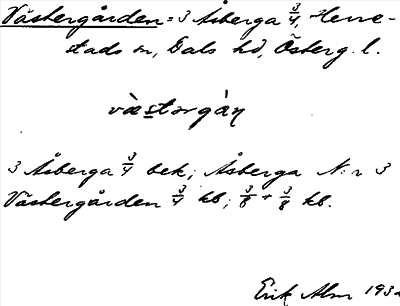 Västergården = 3 Åsberga 3/4, Herre-
stads sn, Dals hd, Österg. l.
væ̀stərgàn̥
3 Åsberga 3/4 bek; Åsberga N:r 3
Västergården 3/4 kb; 3/8 + 3/8 kb.
Erik Alm